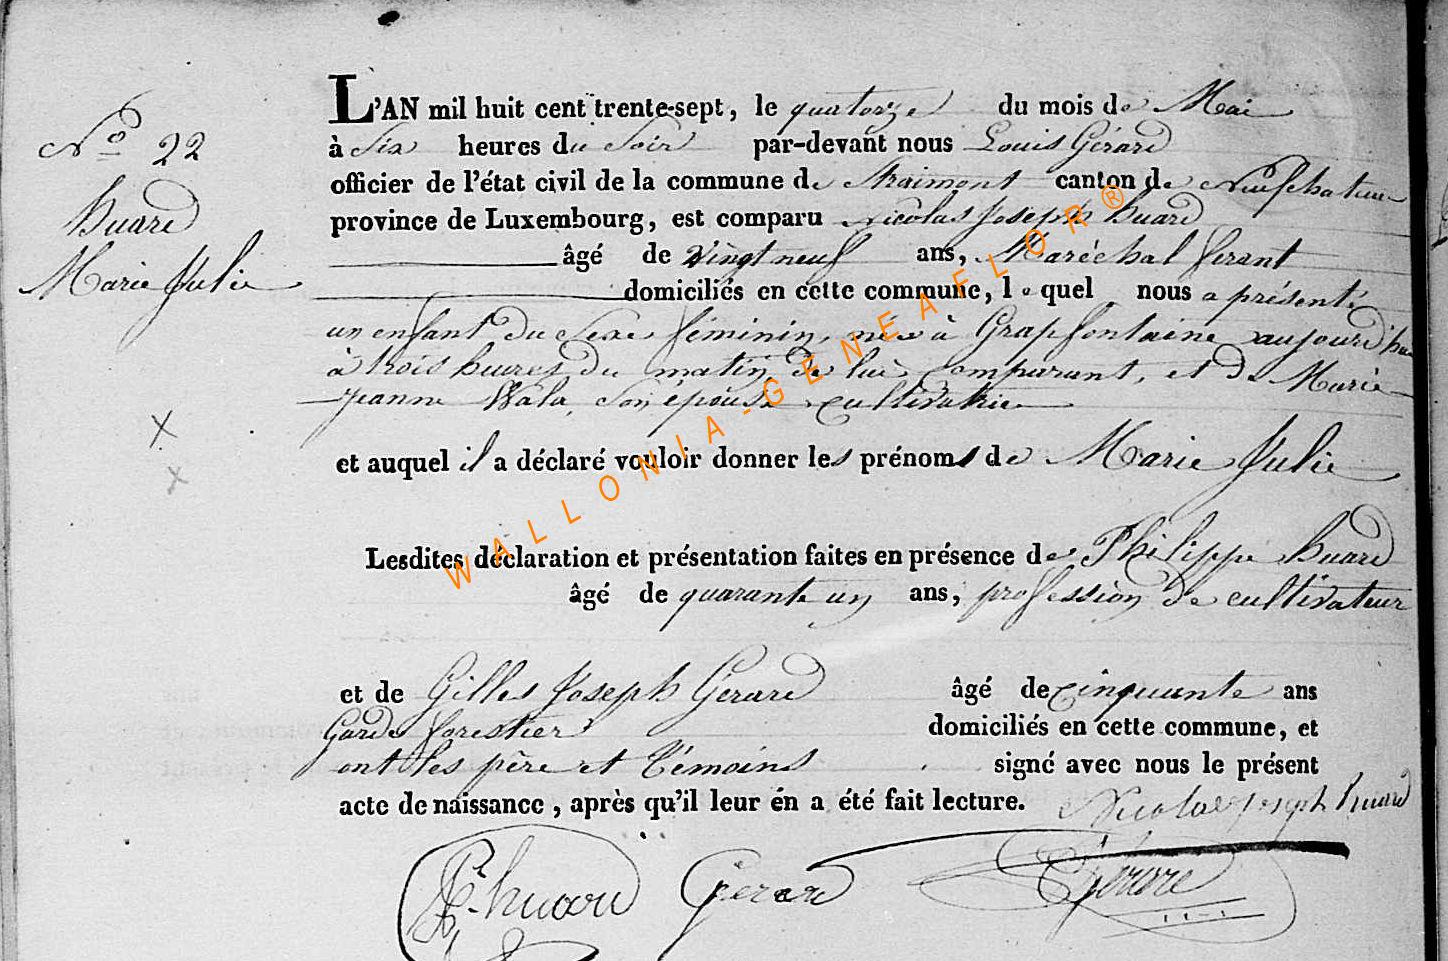 N° 22
Huard
Marie Julie
L'AN mil huit cent trente-sept, le quatorze du mois de Mai
à Six heures du Soir par-devant nous Louis Gérard
officier de l'état civil de la commune de Straimont canton de Neufchateau
province de Luxembourg, est comparu Nicolas Joseph Huard
âgé de vingt neuf ans, Maréchal ferant
domiciliés en cette commune, lequel nous a présenté
un enfant du Sexe féminin, née à Grapfontaine aujourd'hui
à trois heures du matin, de lui comparant, et de Marie
Jeanne Wala, Son épouse cultivatrice
et auquel il a déclaré vouloir donner les prénoms de Marie Julie
Lesdites déclaration et présentation faites en présence de Philippe Huard
âgé de quarante un ans, profession de cultivateur
et de Gilles Joseph Gérard âgé de cinquante ans
Garde forestier domiciliés en cette commune, et
ont les père et témoins signé avec nous le présent
acte de naissance, après qu'il leur en a été fait lecture.
Nicolas Joseph Huard
Ph. huard Gérard Gérard
WALLONIA-GENEAFLOR®